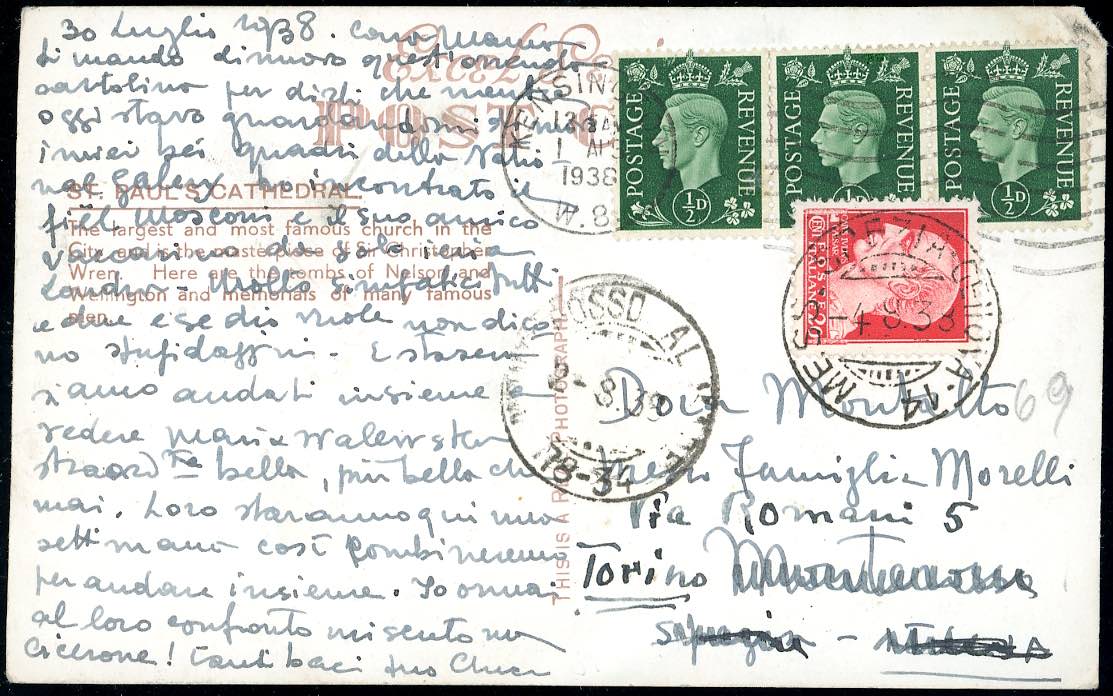 30 Luglio 1938. Cara Mamma
ti mando di nuovo quest'orrenda
cartolina per dirti che mentre
oggi stavo guardandomi
i miei bei quadri della Natio-
nal Gallery ho incontrato il
fiell Mosconi e il suo amico
Vaccari
Londra - Molto simpatici tutti
e due e se dio vuole non dico
no stupidaggini. Estasera
siamo andati insieme a
vedere Maria Walewska
straordria bella, più bella che
mai. Loro staranno qui una
settimana così combineremo
per andare insieme. Io ormai
al loro confronto mi sento un
Cicerone! Tanti baci tuo
POST
ST. PAUL'S CATHEDRAL
The largest and most famous church in the
City and is the masterpiece of Sir Christopher
Wren. Here are the tombs of Nelson and
Wellington and memorials of many famous
men.
THIS IS A REAL PHOTOGRAPH
KENSINGTON
1938
W.8.
POSTAGE REVENUE
½D
POSTAGE REVENUE
½D
POSTAGE REVENUE
½D
POSTE ITALIANE
-4.8.38
ROSSO AL MARE
-8.38
78-34
Dora Montalto
69
presso Famiglia Morelli
Via Romani 5
Torino Monterosso
Spezia -